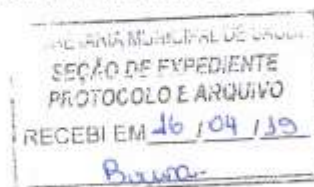 MUNICIPAL DE
SEÇÃO DE EXPEDIENTE
PROTOCOLO E ARQUIVO
RECEBI EM 16 / 04 / 19
Bruna